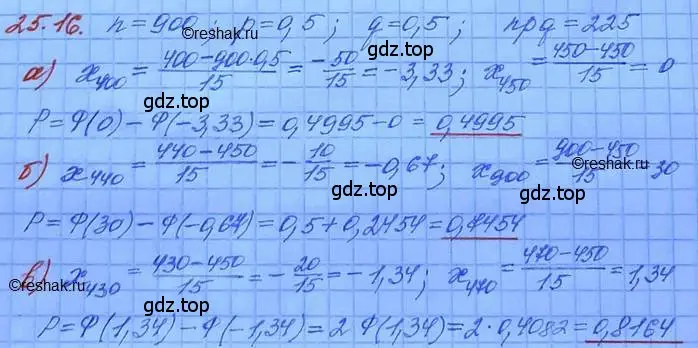 25.16. n=900; p=0,5; q=0,5; npq=225
©reshak.ru
а) x₄₀₀ = (400-900·0,5)/15 = -50/15 = -3,33; x₄₅₀ = (450-450)/15 = 0
gdz.top gdz.top
P = Ф(0) - Ф(-3,33) = 0,4995-0 = 0,4995
б) x₄₄₀ = (440-450)/15 = -10/15 = -0,67; x₉₀₀ = (900-450)/15 = 30
©reshak.ru
gdz.top gdz.top
P = Ф(30) - Ф(-0,67) = 0,5+0,2454 = 0,7454
в) x₄₃₀ = (430-450)/15 = -20/15 = -1,34; x₄₇₀ = (470-450)/15 = 1,34
©reshak.ru
gdz.top gdz.top
P = Ф(1,34) - Ф(-1,34) = 2·Ф(1,34) = 2·0,4082 = 0,8164